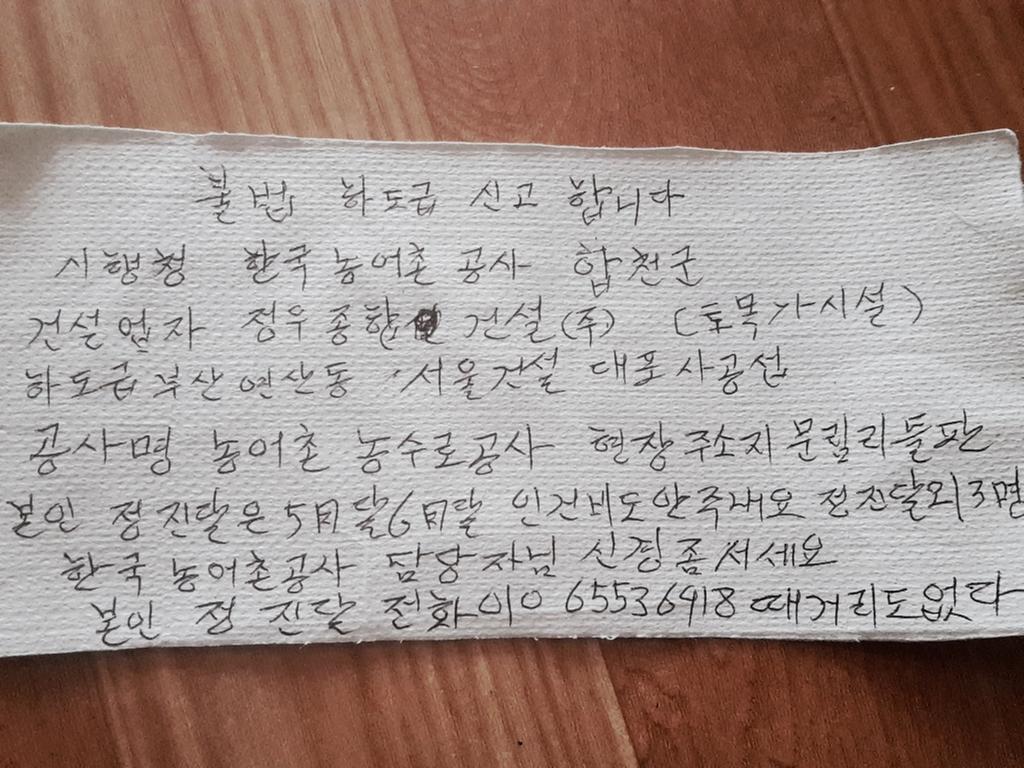 불법 하도급 신고 합니다
시행청 한국농어촌 공사 합천군
건설업자 정우종합 건설(주) (토목가시설)
하도급부산연산동 서울건설 대표사공섭
공사명 농어촌 농수로공사 현장주소지문림리들판
본인 정진달은 5月달6月달 인건비도안주내요 전진달외3명
한국농어촌공사 담당자님 신경좀써세요
본인 정진달 전화010 65536918 때거리도없다